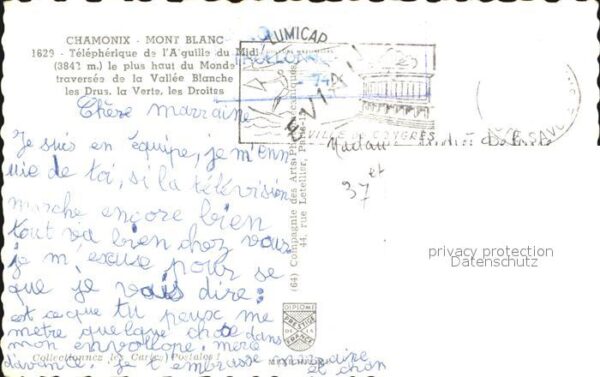 CHAMONIX - MONT BLANC
1629 - Téléphérique de l'Aiguille du Midi
(3842 m.) le plus haut du Monde
traversée de la Vallée Blanche
les Drus, la Verte, les Droites
Chère marraine
Je suis en équipe, je m'enn
uie de toi, si la télévision
marche encore bien
tout va bien chez vous
je m'excuse pour se
que je vais dire:
est ce que tu peux me
metre quelque chose dans
mon envoloppe. merci
d'avance. je t'embrasse marraine
et
Collectionnez les Cartes Postales !
(64) Compagnie des Arts Photomécaniques
44, rue Letellier, Paris-15
DIPLOME
PRESTIGE
DE LA
LUMICAP
EVIAN
VILLE DE CONGRÈS
et
37
privacy protection
Datenschutz